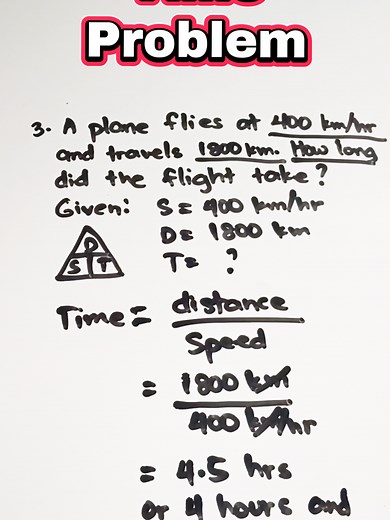 Problem
3. A plane flies at 400 km/hr
and travels 1800 km. How long
did the flight take?
Given: S = 400 km/hr
D = 1800 km
T = ?
D
S T
Time = distance
Speed
= 1800 km
400 km/hr
= 4.5 hrs
or 4 hours and